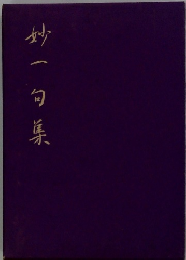 妙一句集